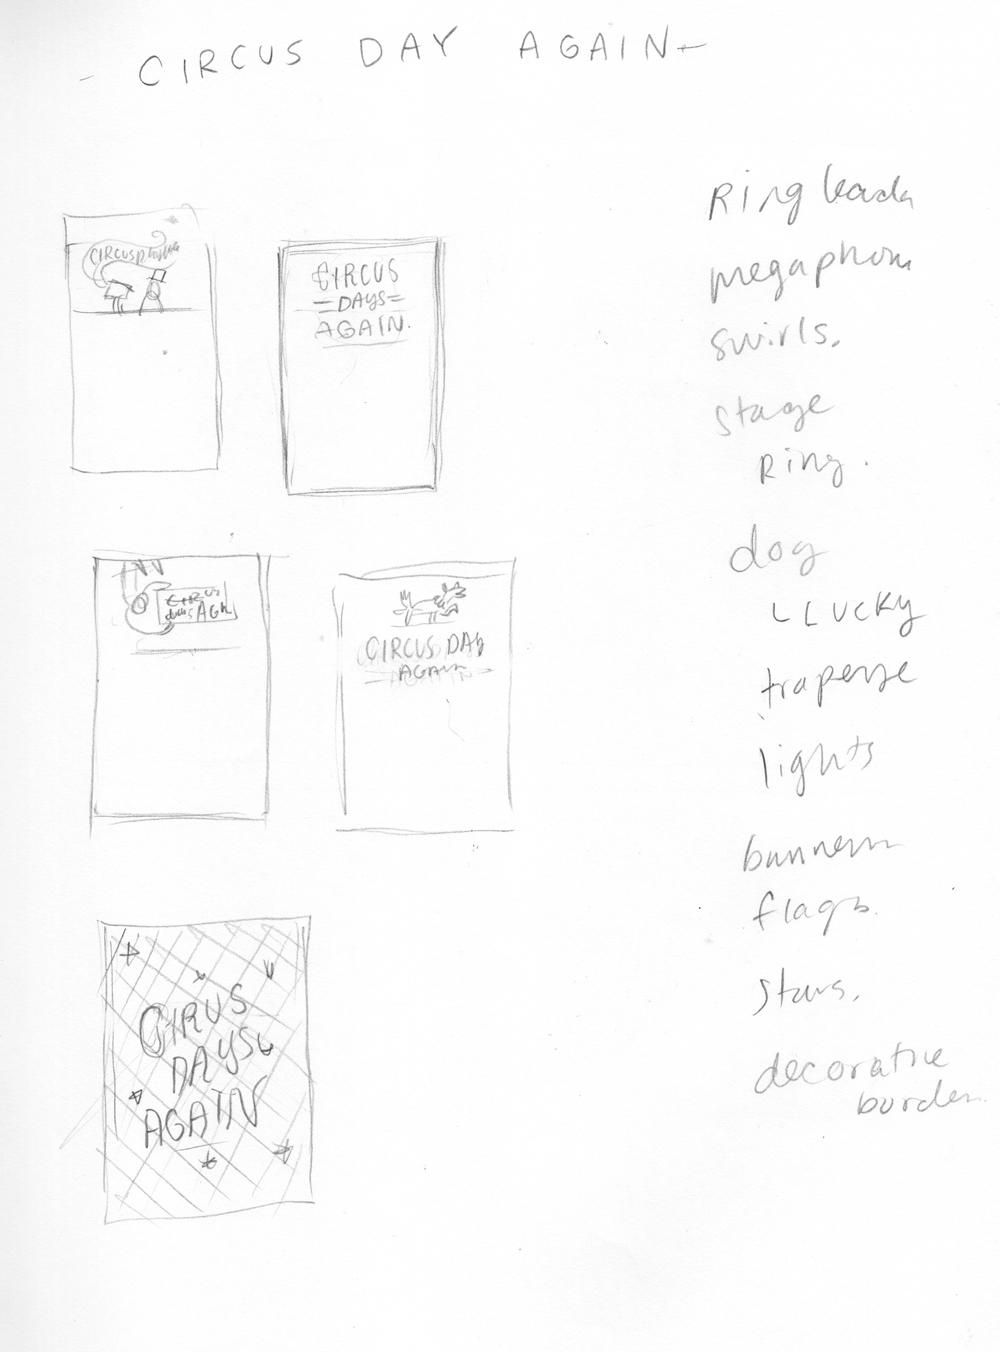 - CIRCUS DAY AGAIN -
CIRCUS
CIRCUS
=DAYS=
AGAIN.
CIRCUS
days AGN
CIRCUS DAY
- AGAIN -
CIRUS
DAYS
AGAIN
Ring leader
megaphone
swirls.
stage
Ring.
dog
L LUCKY
trapenze
lights
banners
flags
stars.
decorative
border